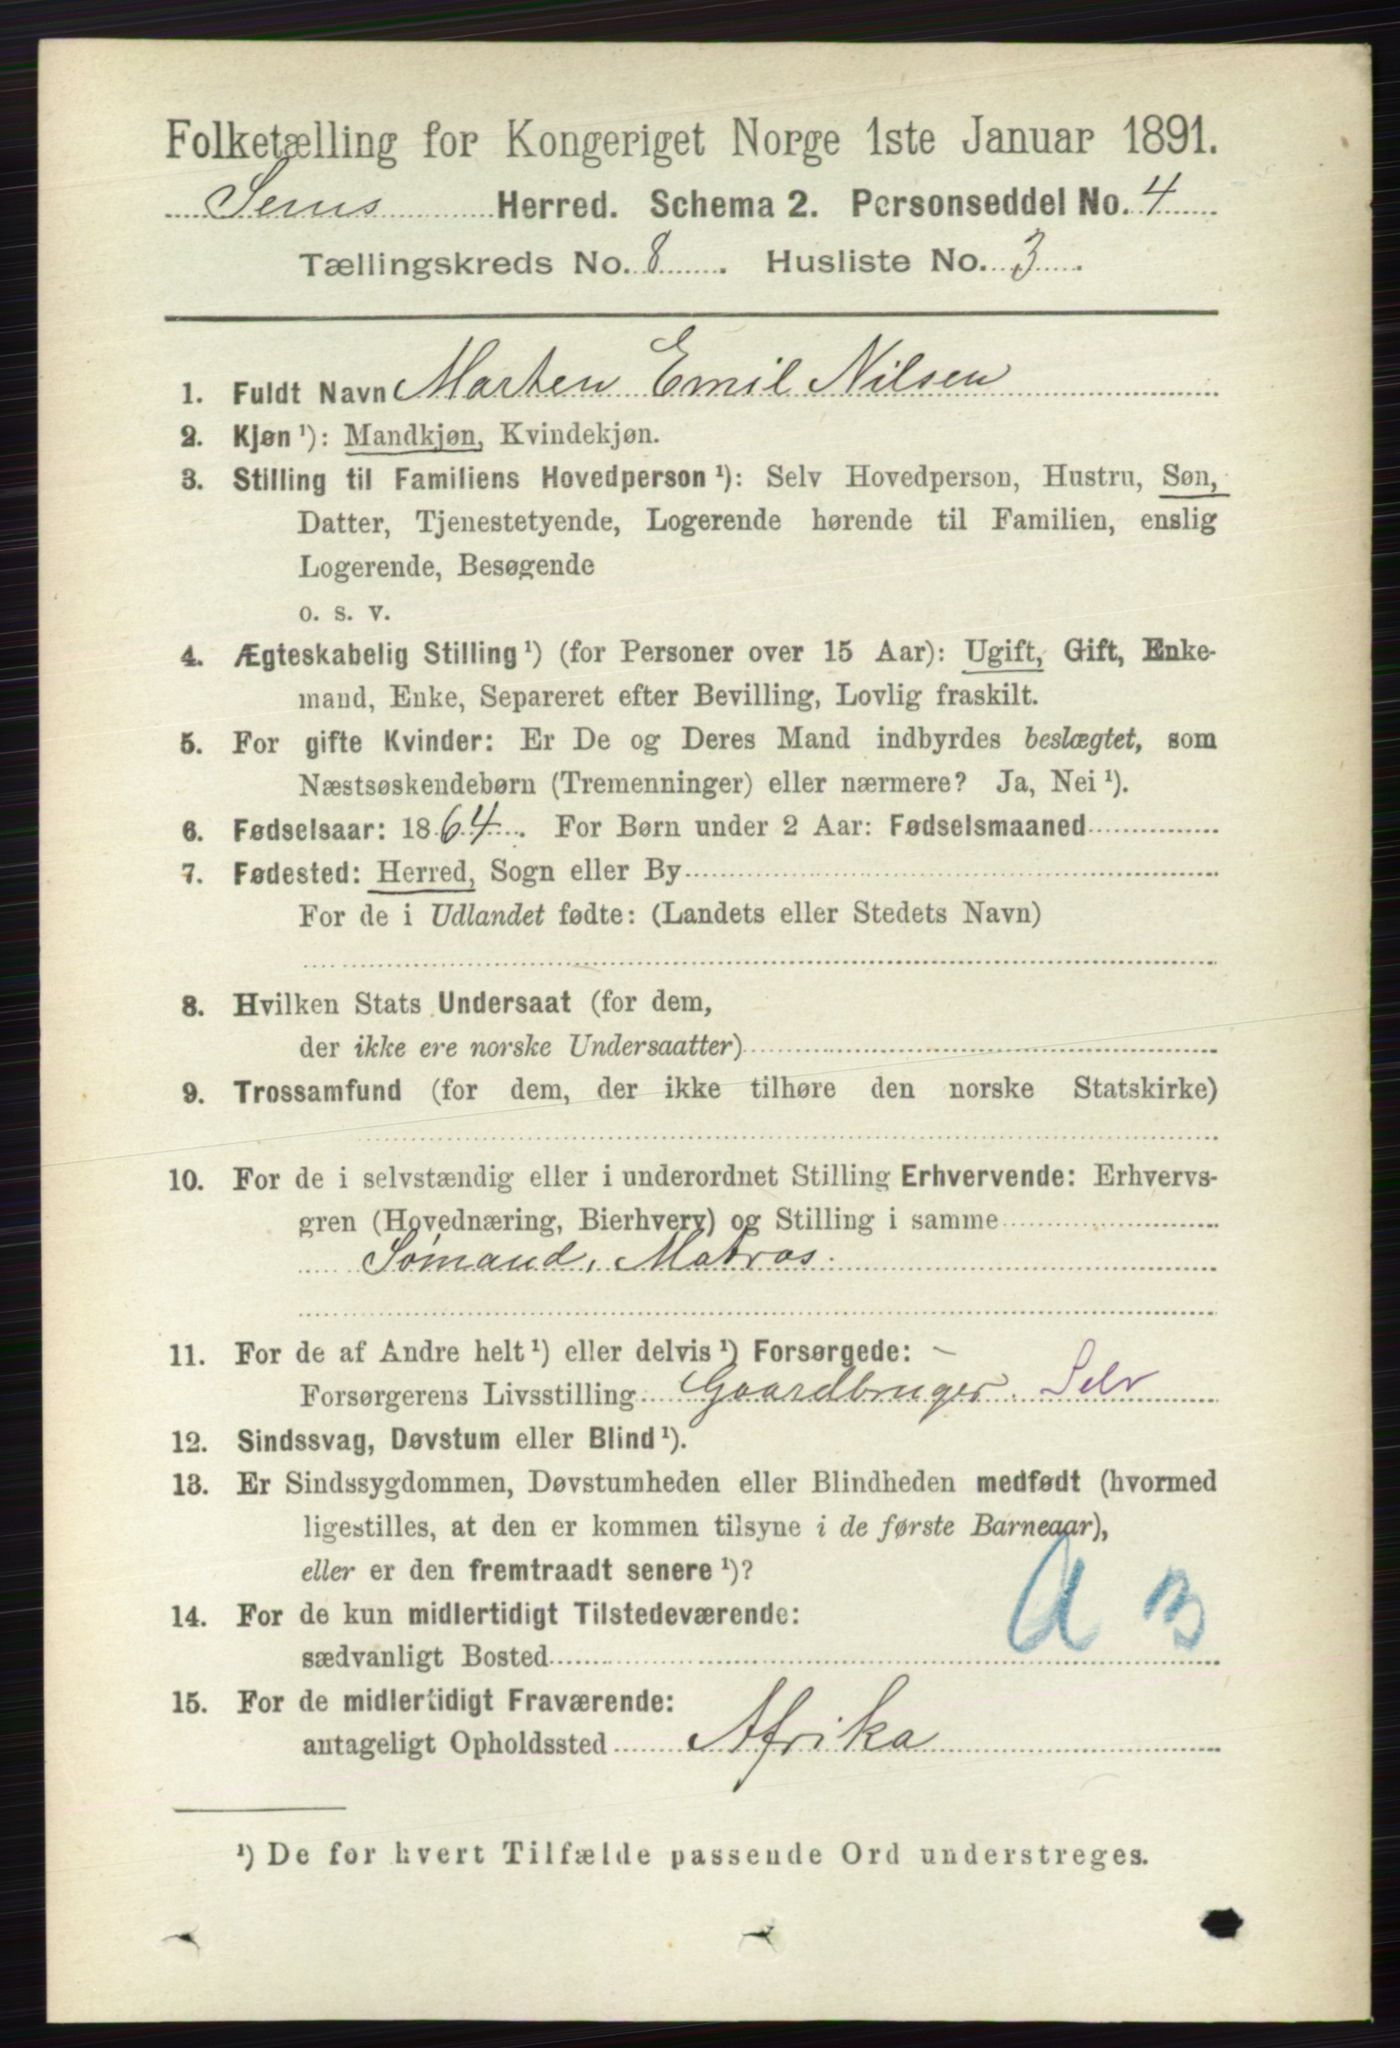 Folketælling for Kongeriget Norge 1ste Januar 1891.
Sems Herred. Schema 2. Personseddel No. 4
Tællingskreds No. 8. Husliste No. 3.
1. Fuldt Navn Marten Emil Nilsen
2. Kjøn ¹): Mandkjøn, Kvindekjøn.
3. Stilling til Familiens Hovedperson ¹): Selv Hovedperson, Hustru, Søn,
Datter, Tjenestetyende, Logerende hørende til Familien, enslig
Logerende, Besøgende
o. s. v.
4. Ægteskabelig Stilling ¹) (for Personer over 15 Aar): Ugift, Gift, Enke-
mand, Enke, Separeret efter Bevilling, Lovlig fraskilt.
5. For gifte Kvinder: Er De og Deres Mand indbyrdes beslægtet, som
Næstsøskendebørn (Tremenninger) eller nærmere? Ja, Nei ¹).
6. Fødselsaar: 1864. For Børn under 2 Aar: Fødselsmaaned
7. Fødested: Herred, Sogn eller By
For de i Udlandet fødte: (Landets eller Stedets Navn)
8. Hvilken Stats Undersaat (for dem,
der ikke ere norske Undersaatter)
9. Trossamfund (for dem, der ikke tilhøre den norske Statskirke)
10. For de i selvstændig eller i underordnet Stilling Erhvervende: Erhvervs-
gren (Hovednæring, Bierhverv) og Stilling i samme
Sømand, Matros.
11. For de af Andre helt ¹) eller delvis ¹) Forsørgede: –
Forsørgerens Livsstilling Gaardbruger. Selv
12. Sindssvag, Døvstum eller Blind ¹).
13. Er Sindssygdommen, Døvstumheden eller Blindheden medfødt (hvormed
ligestilles, at den er kommen tilsyne i de første Barneaar),
eller er den fremtraadt senere ¹)?
14. For de kun midlertidigt Tilstedeværende:
sædvanligt Bosted
15. For de midlertidigt Fraværende:
antageligt Opholdssted Afrika
¹) De for hvert Tilfælde passende Ord understreges.